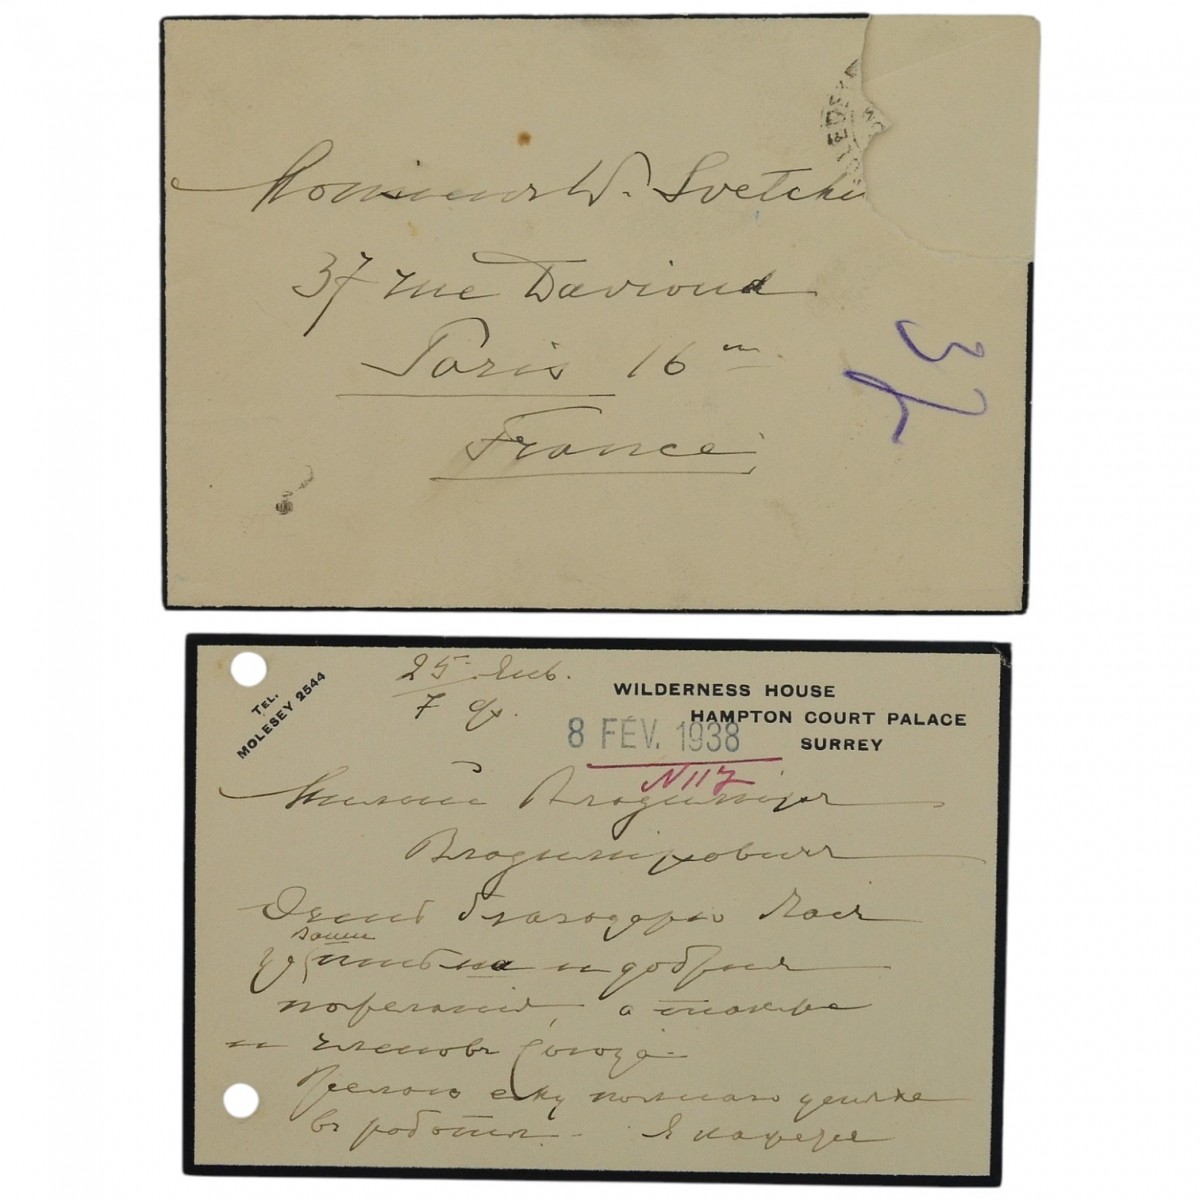 Monsieur W. Svetchi
37 rue Davioud
Paris 16 me
France
37
TEL.
MOLESEY 2544
25 Янв.
7 Ф.
WILDERNESS HOUSE
HAMPTON COURT PALACE
SURREY
8 FÉV. 1938
N 117
Милый Владимиръ
Владимировичъ
Очень благодарю Васъ
Ваши
и добрыя
пожеланія, а также
и членовъ Союза.
Желаю ему полнаго успѣха
въ работѣ. Я также